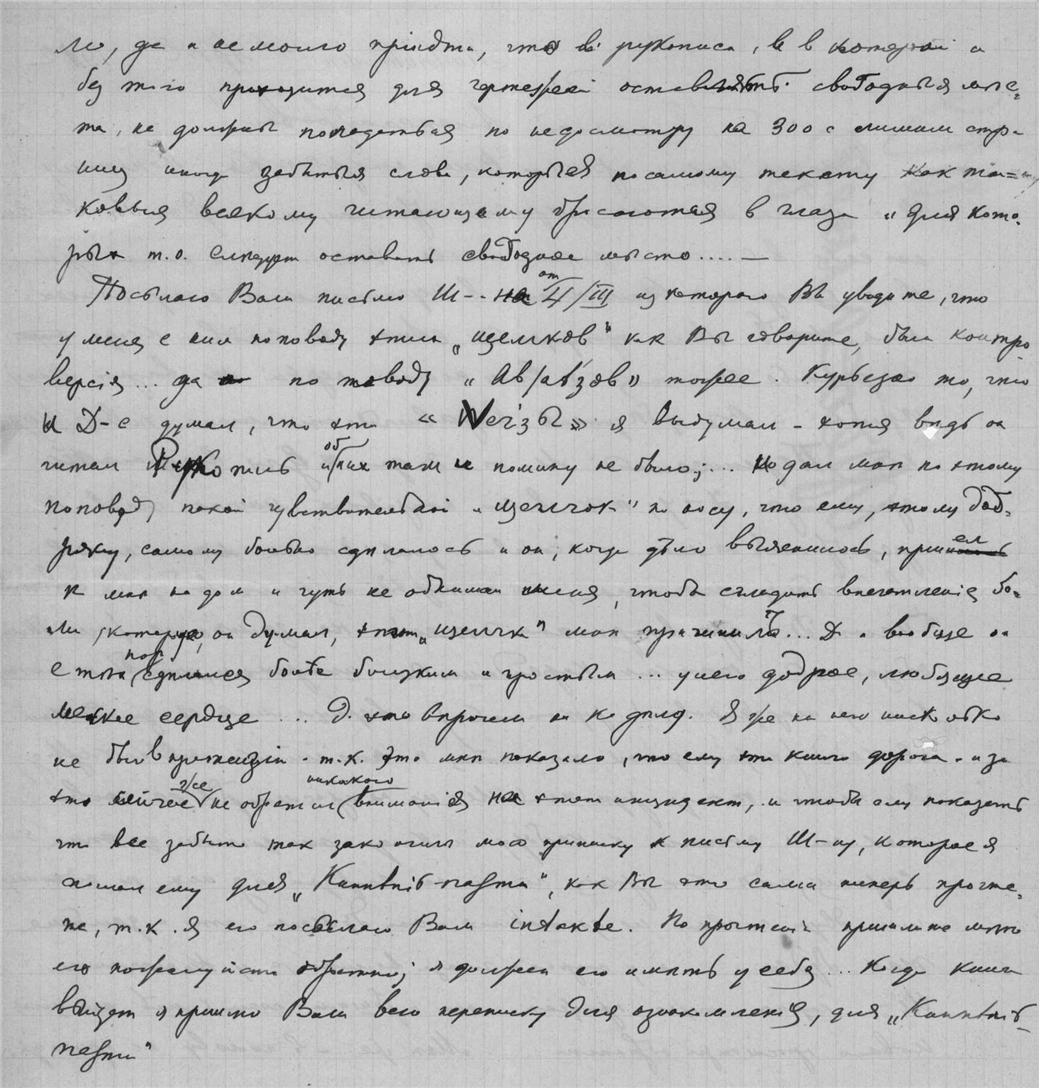 ло, да и не могло придти, что въ рукописи, в которой и
без того приходится для чертежей оставлять свободныя мѣс-
та, не должны попадаться по недосмотру на 300 с лишним стра-
ниц иногда забытыя слова, которыя по самому тексту как та-
ковыя всякому читающему бросаются в глаза и для кото-
рых т.о. следует оставить свободное мѣсто.... —
Посылаю Вам письмо Ш-- от 4/III из которого Вы увидите, что
у меня с ним по поводу этих „щелчков" как Вы говорите, была контро-
версія... да по поводу « тоже. Курьезно то, что
и Д-с думал, что эти « » я выдумал - хотя видь он
читал рукопись и об них там и помину не было;... Но дал мнѣ по этому
поповоду такой чувствительный „щелчок" по носу, что ему, этому доб-
ряку, самому больно сдѣлалось и он, когда дѣло выяснилось, пришел
к мнѣ на дом и чуть не обнимал меня, чтобы сгладить впечатленіе бо-
ли, которую, он думал, этот „щелчк" мнѣ причинилъ... Д и вообще он
с тѣх пор сдѣлался болѣе близким и простым ... у него доброе, любящее
мягкое сердце ... Д. это впрочем не к дѣлу. Я же на него нисколько
не был в претензіи - т.к. это мнѣ показало, что ему эта книга дорога. и за
это сейчас же не обратил никакого вниманія на этот инцидент, и чтобы ему показать
что все забыто так закончил мою приписку к письму Ш-ну, которое я
послал ему для как Вы это сами теперь прочте-
те, т.к. я его посылаю Вам intakte. По прочтеніи пришлите мнѣ
его пожалуйста обратно; я должен его имѣть у себя... Когда книга
выйдет я пришлю Вам всю переписку для ознакомленія, для